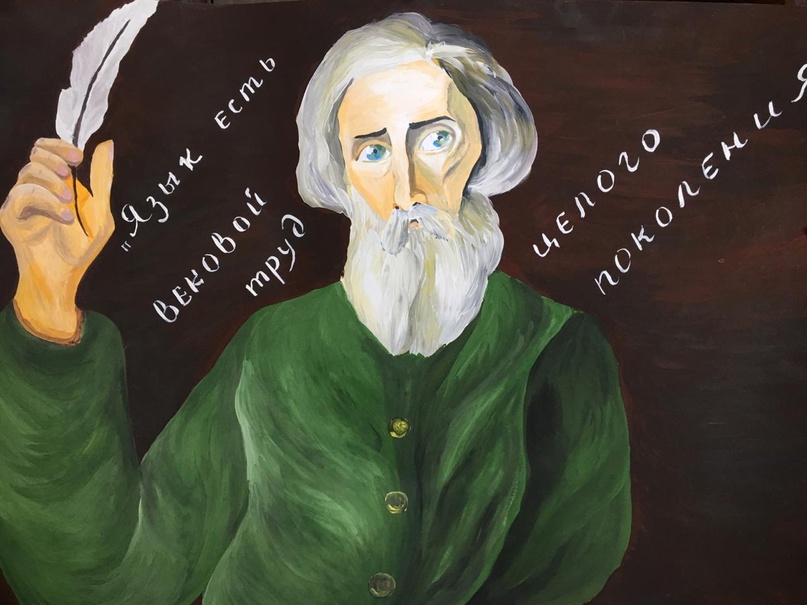 "Язык есть
вековой
труд
целого
поколения